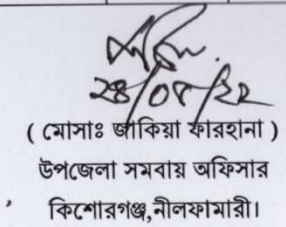 ২৪/০৮/২২
( মোসাঃ জাকিয়া ফারহানা )
উপজেলা সমবায় অফিসার
কিশোরগঞ্জ,নীলফামারী।